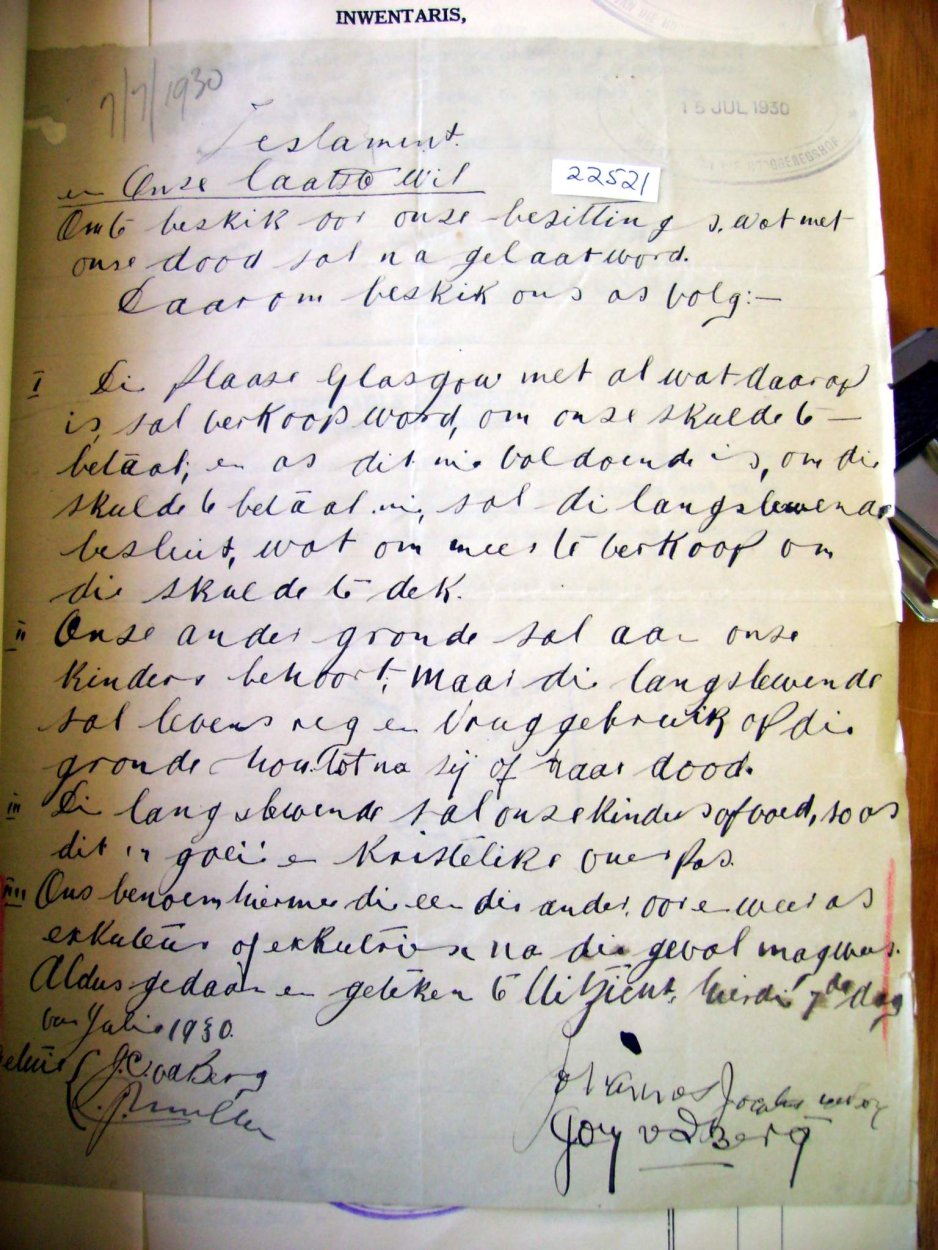 INWENTARIS,
7/7/1930
15 JUL 1930
Testament.
en Onze laatste Wil
22521
Om te beskik oor onze besittings, wat met
onse dood sal na gelaat word.
Daarom beskik ons as volg:—
I Di plaase Glasgow met al wat daarop
is, sal verkoop word, om onze skulde te —
betaal; en as dit nie voldoende is, om die
skulde te betaal nie, sal di langslewende
besluit, wat om meer te verkoop om
die skulde te dek.
II Onze ander gronde sal aan onze
kinders behoort; maar die langslewende
sal levens reg en Vruggebruik op die
gronde hou tot na sij of haar dood.
III Di langslewende sal onze kinders opvoed, so as
dit 'n goeie en Kristelike ouer pas.
IIII Ons benoem hiermee die een die ander oor en weer as
ekkuteur of ekkutriese na die geval mag wees.
Aldus gedaan en geteken te Uitzicht, hierdie 7de dag
van Julie 1930.
J. C. vd Berg
v d Berg